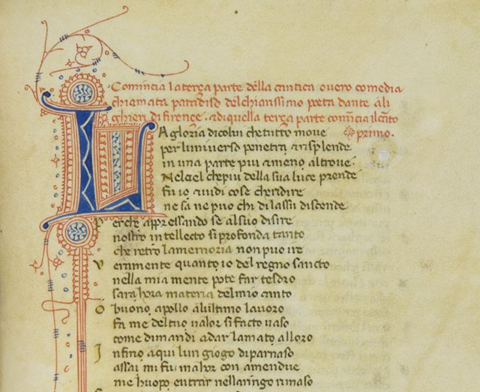 Comincia la terça parte della cantica overo comedia
chiamata paradiso del chiarissimo poeta dante ali
ghieri di firençe. Et di quella terça parte comincia il canto
primo.
La gloria di colui che tutto move
per l universo penetra et risplende
in una parte piu et meno altrove.
Nel ciel che piu della sua luce prende
fu io et vidi cose che ridire
ne sa ne puo chi di lassu discende
Perche appressando se al suo disire
nostro intellecto si profonda tanto
che retro la memoria non puo ire
Veramente quanto io del regno sancto
nella mia mente pote far tesoro
sara hora materia del mio canto
O buono apollo all ultimo lavoro
fa me del tuo valor si facto vaso
come dimandi a dar l amato alloro
Infino a qui l un giogo di parnaso
assai mi fu ma hor con amendue
me huopo entrar nell aringo rimaso